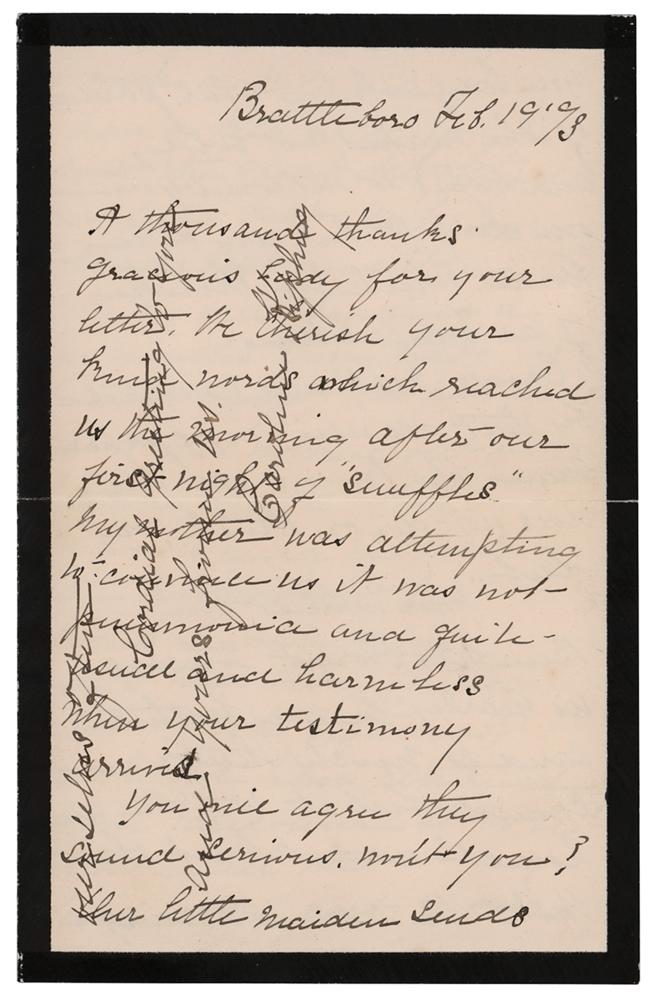 Brattleboro Feb. 19 '93
A thousand thanks
gracious Lady for your
letter. We cherish your
kind words which reached
us the morning after our
first night of "snuffles"
My mother was attempting
to convince us it was not
pneumonia and quite
usual and harmless
when your testimony
arrived.
You will agree they
sound serious. won't you?
Our little maiden sends
Cordial greeting to you
and yours from us.
Caroline Kipling